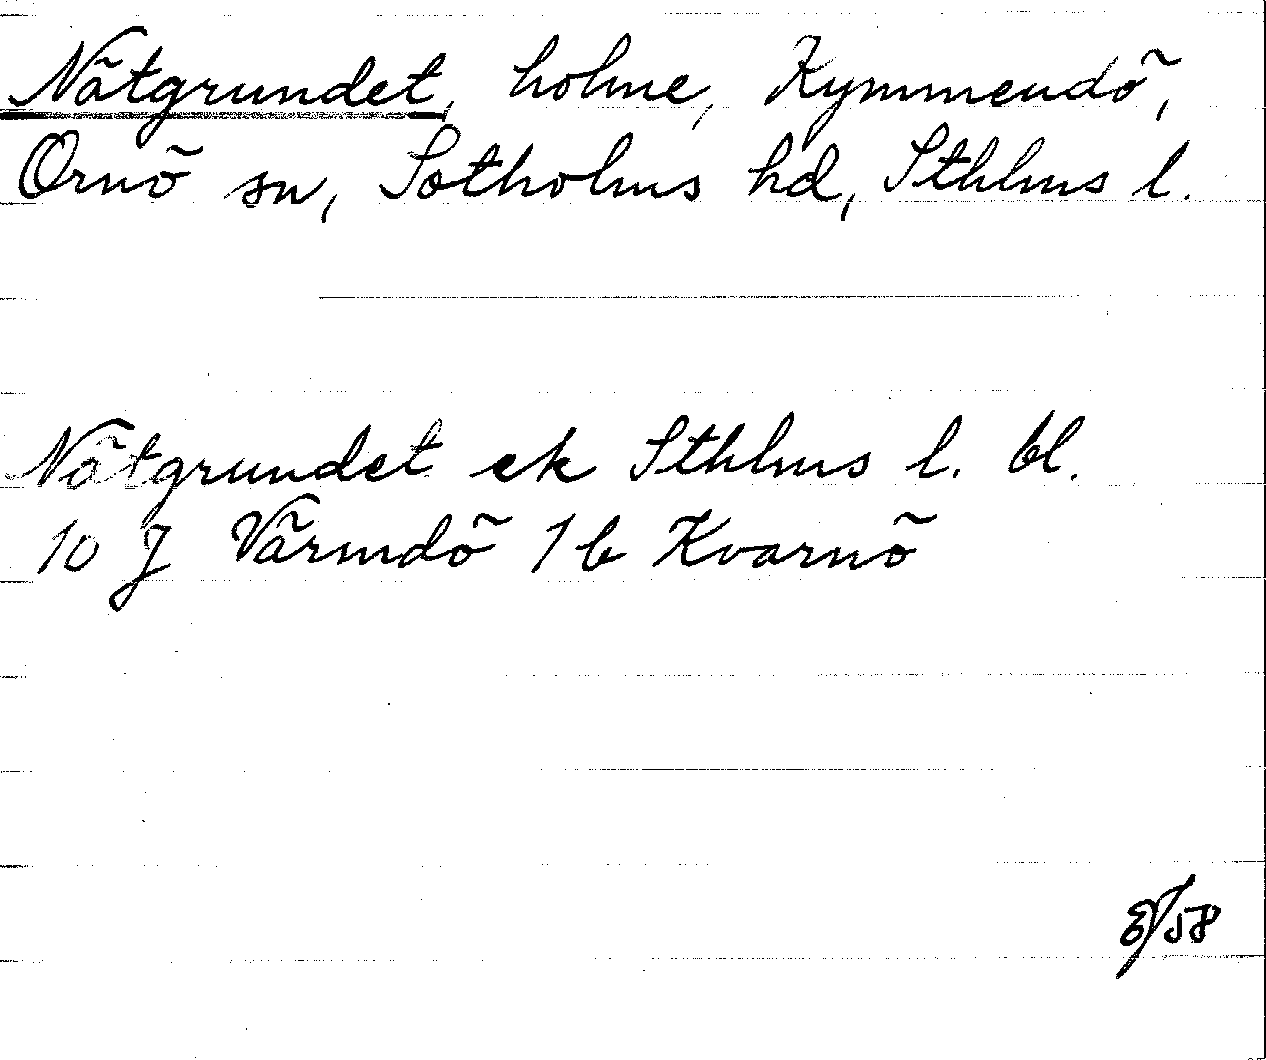 Nätgrundet, holme, Kymmendö,
Ornö sn, Sotholms hd, Sthlms l.
Nätgrundet ek Sthlms l. bl.
10 J Värmdö 1 b Kvarnö
/58